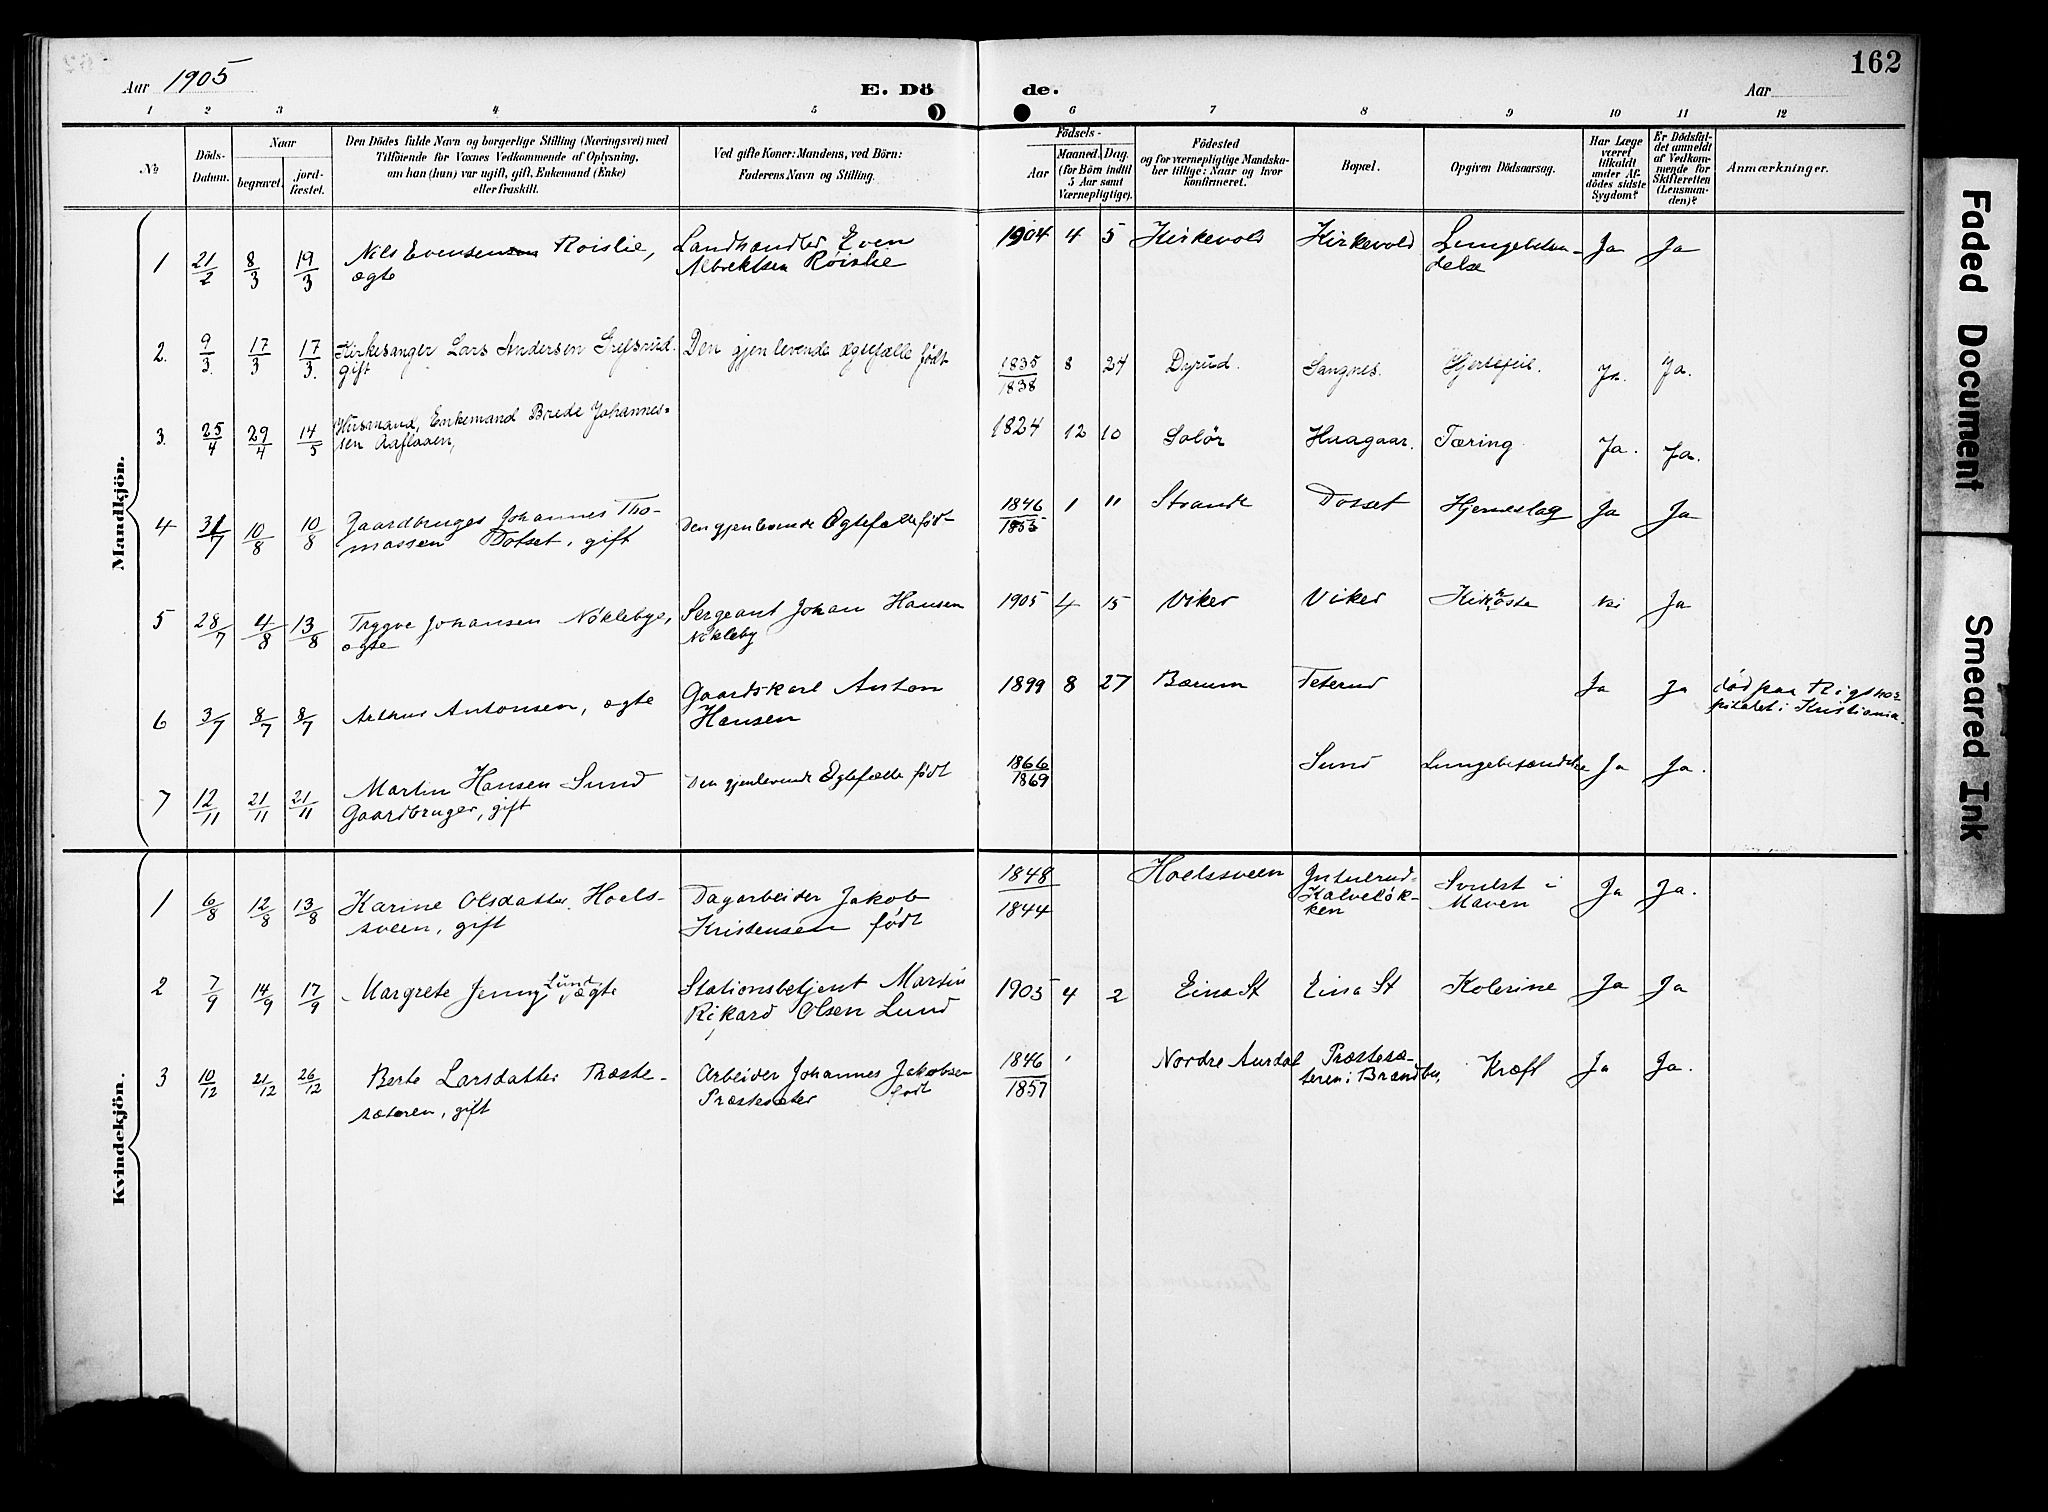 162
Aar 1905
E. Dö
de.
Aar
1 2 3 4 5 6 7 8 9 10 11 12
No
Döds-Datum.
Naar
begravet.
jord-fæstet.
Den Dödes fulde Navn og borgerlige Stilling (Næringsvei) med
Tilföiende for Voxnes Vedkommende af Oplysning,
om han (hun) var ugift, gift, Enkemand (Enke)
eller fraskilt.
Ved gifte Koner: Mandens, ved Börn:
Faderens Navn og Stilling.
Födsels-
Aar
Maaned. Dag.
(for Börn indtil
5 Aar samt
Værnepligtige).
Födested
og for værnepligtige Mandska-
ber tillige: Naar og hvor
konfirmeret.
Bopæl.
Opgiven Dödsaarsag.
Har Læge
været
tilkaldt
under Af-
dödes sidste
Sygdom?
Er Dödsfal-
det anmeldt
af Vedkom-
mende for
Skifteretten
(Lensman-
den)?
Anmærkninger.
Mandkjön.
1 21/2 8/3 19/3 Nils Evensen Røislie, ægte Landhandler Even Albrektsen Røislie 1904 4 5 Kirkevold Kirkevold Lungebetændelse Ja Ja
2. 9/3 17/3 17/3. Kirkesanger Lars Andersen Grefsrud. gift Den gjenlevende ægtefælle født 1835/1838 8 24 Dyrud. Sangnes. Hjertefeil. Ja. Ja.
3. 25/4 29/4 14/5 Husmand, Enkemand Brede Johannes-
sen Aaflaaen, 1824 12 10 Solør Haagaar. Tæring Ja. Ja.
4 31/7 10/8 10/8 Gaardbruger Johannes Tho-
massen Dotset, gift Den gjenlevende Ægtefælle født 1846/1853 1 11 Strande Dotset Hjerneslag Ja Ja
5 28/7 4/8 13/8 Trygve Johansen Nøklebye, ægte Sergeant Johan Hansen Nøkleby 1905 4 15 Viker Viker Kikhoste Nei Ja
6 3/7 8/7 8/7 Arthur Antonsen, ægte Gaardskarl Anton Hansen 1899 8 27 Bærum Teterud Ja Ja død paa Rigshos-
pitalet i Kristiania.
7 12/11 21/11 21/11 Martin Hansen Sund
Gaardbruger, gift Den gjenlevende Ægtefælle født 1866/1869 Sund Lungebetændelse Ja Ja.
Kvindekjön.
1 6/8 12/8 13/8 Karine Olsdatter Hoels-
sveen, gift Dagarbeider Jakob Kristensen født 1848/1844 Hoelssveen Kalveløk-
ken Svulst i Maven Ja Ja.
2 7/9 14/9 17/9 Margrete Jenny Lund, ægte Stationsbetjent Martin Rikard Olsen Lund 1905 4 2 Eina St Eina St Kolerine Ja Ja
3 10/12 21/12 26/12 Berte Larsdatter Præste-
sæteren, gift Arbeider Johannes Jakobsen Præstesæter født 1846/1857 Nordre Aurdal Præstesæ-
teren i Brandbu, Kræft Ja Ja.
Faded Document
Smeared Ink